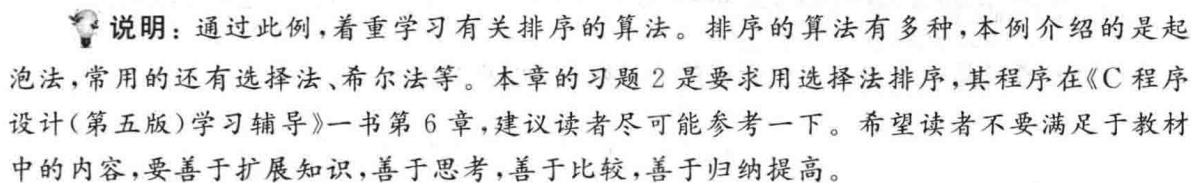 说明：通过此例，着重学习有关排序的算法。排序的算法有多种，本例介绍的是起
泡法，常用的还有选择法、希尔法等。本章的习题 2 是要求用选择法排序，其程序在《C 程序
设计（第五版）学习辅导》一书第 6 章，建议读者尽可能参考一下。希望读者不要满足于教材
中的内容，要善于扩展知识，善于思考，善于比较，善于归纳提高。